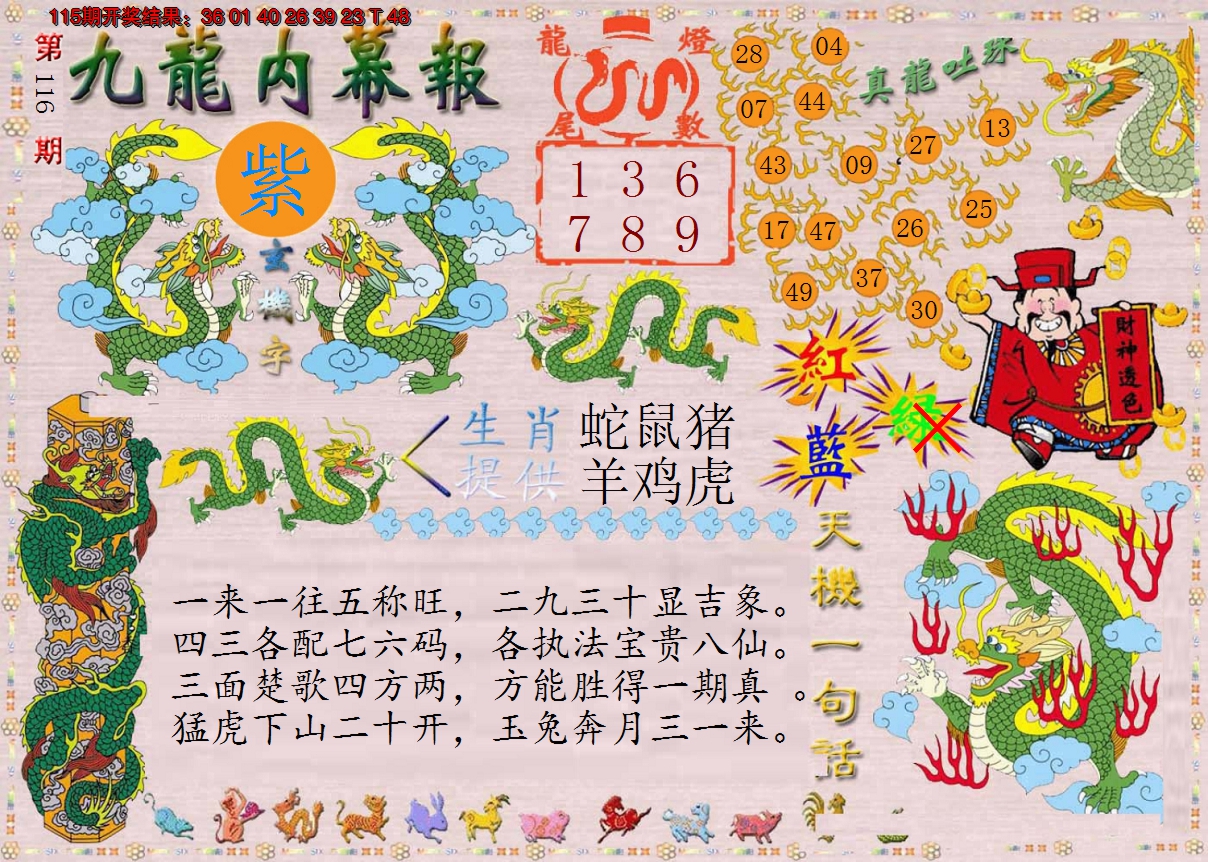 115期开奖结果：36 01 40 26 39 23 T 48
第116期
九龍内幕報
紫
玄機字
龍燈尾數
1 3 6
7 8 9
真龍吐珠
28 04
07 44
43 09 27 13
17 47 26 25
49 37 30
財神透色
紅
綠
藍
生肖提供
蛇鼠猪
羊鸡虎
天機一句話
一来一往五称旺，二九三十显吉象。
四三各配七六码，各执法宝贵八仙。
三面楚歌四方两，方能胜得一期真 。
猛虎下山二十开，玉兔奔月三一来。